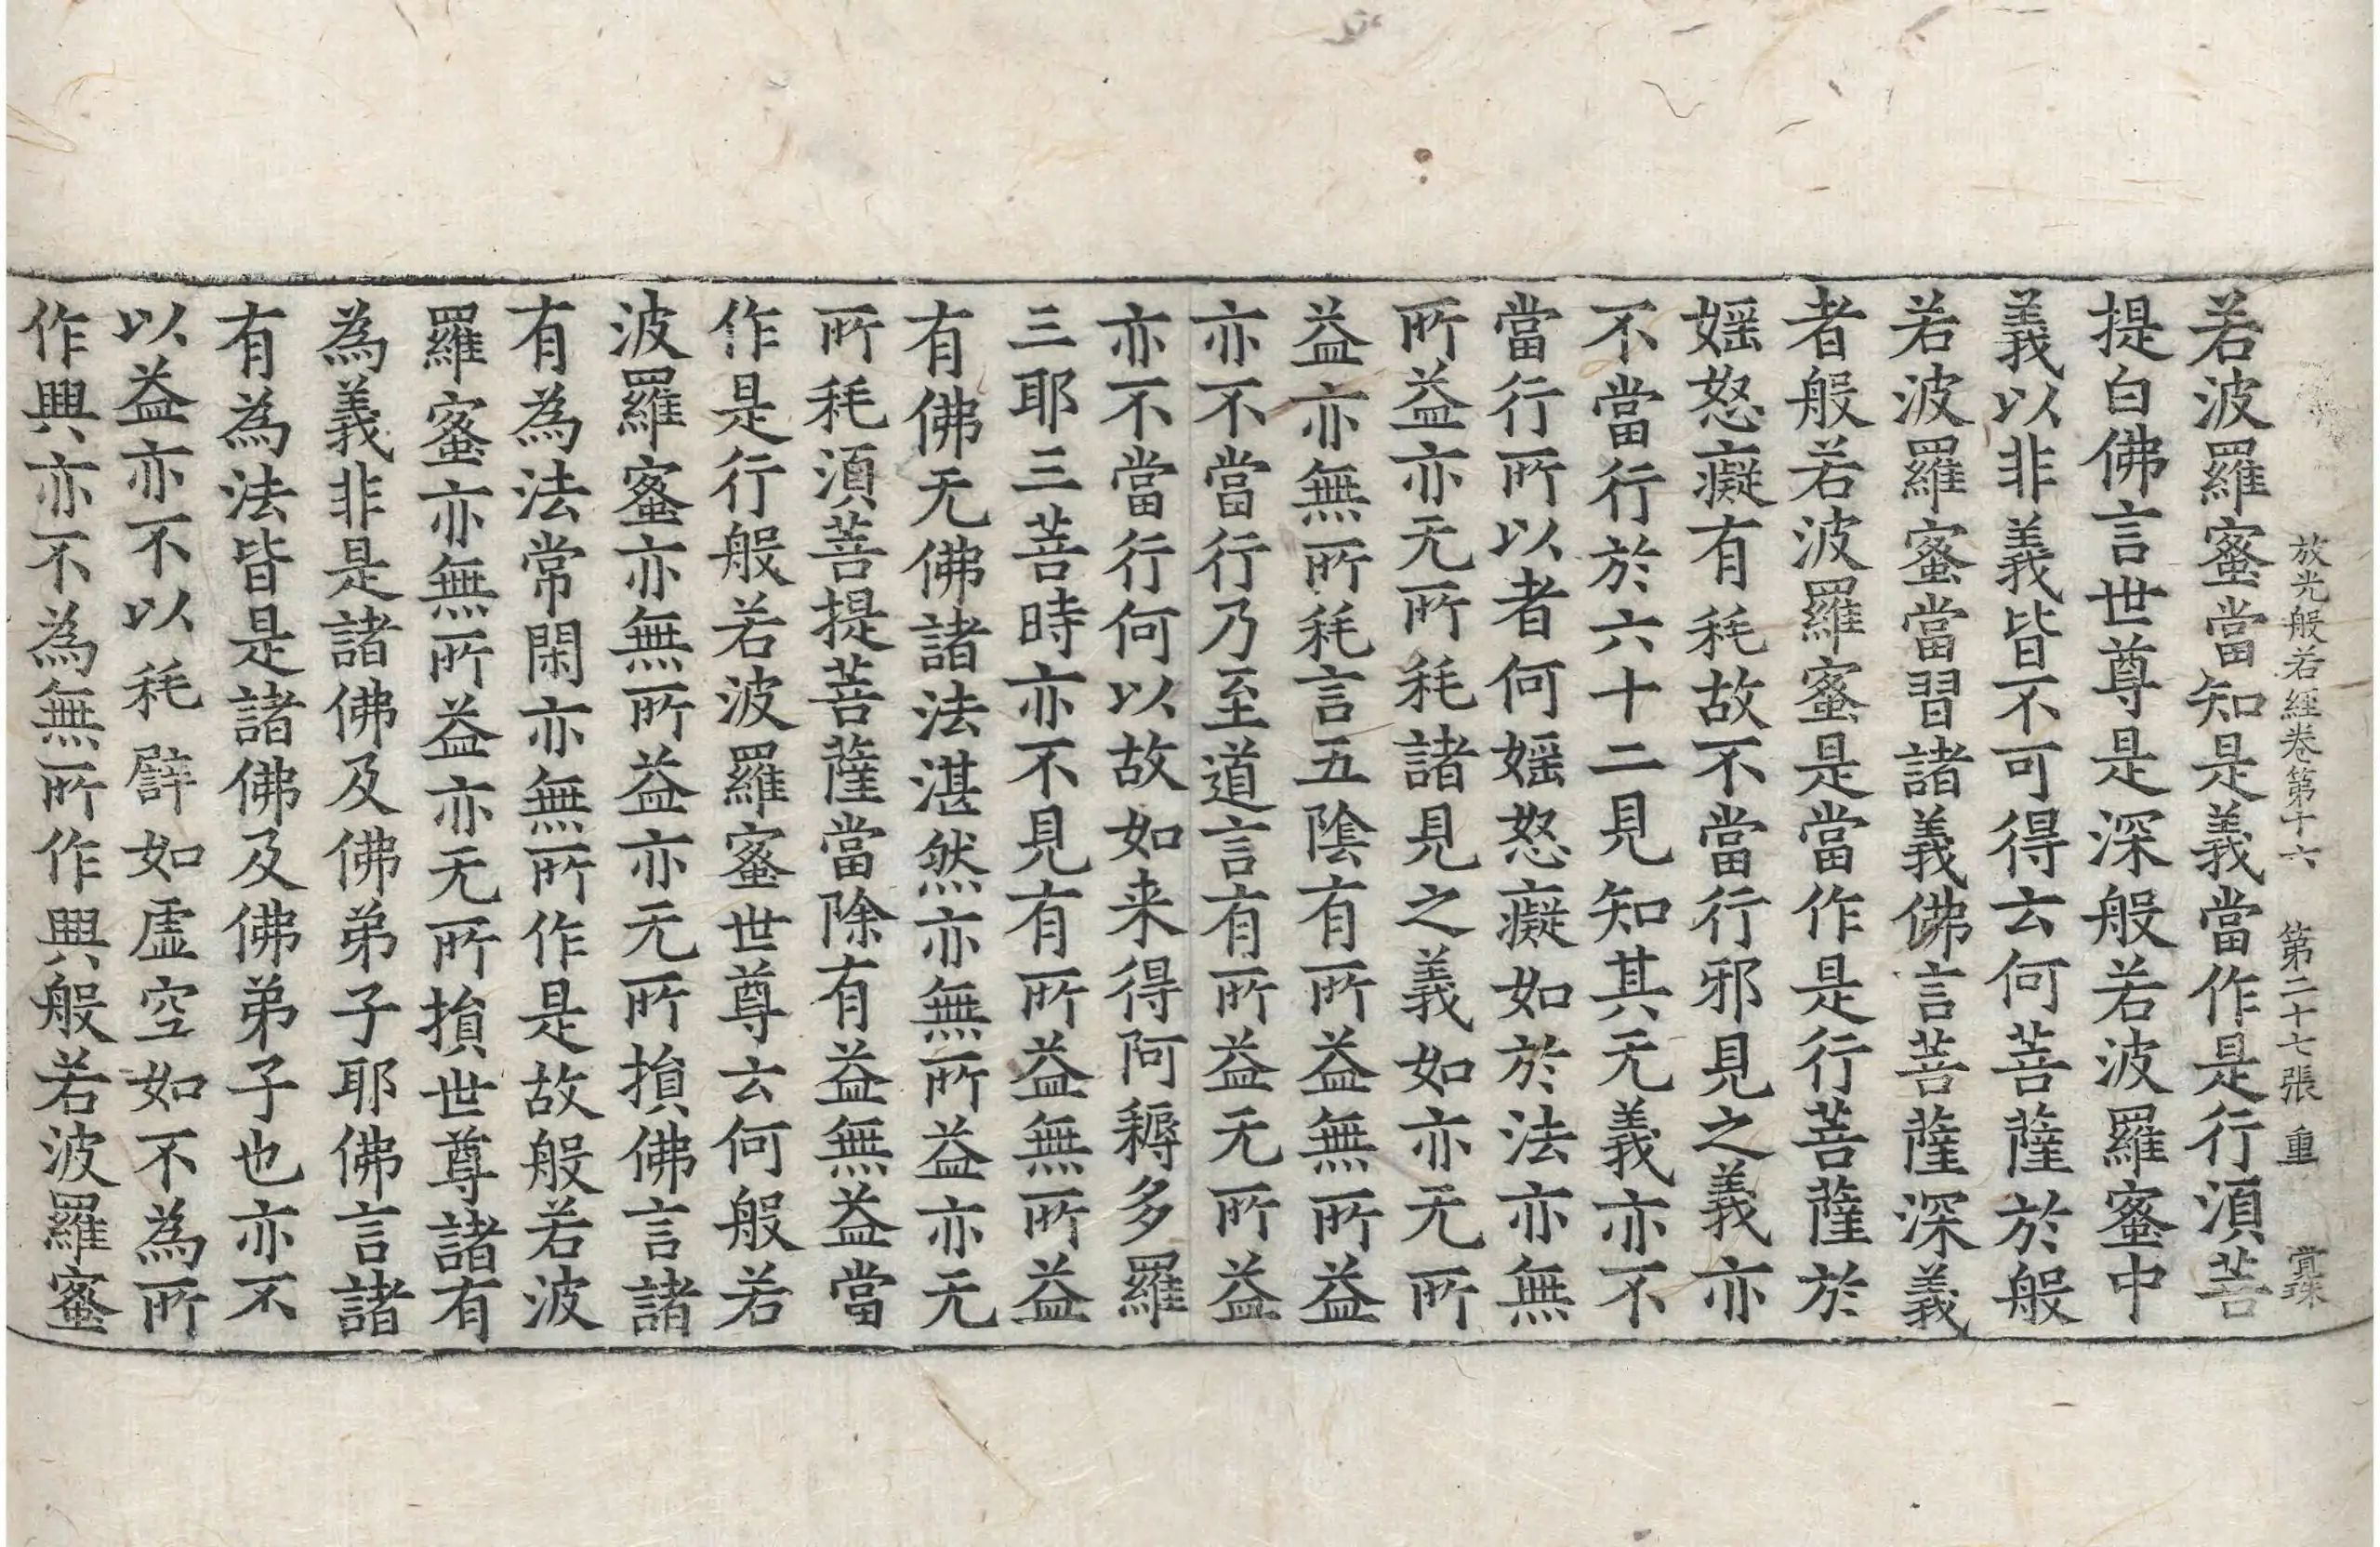 放光般若經卷第十六 第二十七張 重
若波羅蜜當知是義當作是行湏菩
提白佛言世尊是深般若波羅蜜中
義以非義皆不可得云何菩薩於般
若波羅蜜當習諸義佛言菩薩深義
者般若波羅蜜是當作是行菩薩於
婬怒癡有秏故不當行邪見之義亦
不當行於六十二見知其无義亦不
當行所以者何婬怒癡如於法亦無
所益亦无所秏諸見之義如亦无所
益亦無所秏言五陰有所益無所益
亦不當行乃至道言有所益无所益
亦不當行何以故如来得阿耨多羅
三耶三菩時亦不見有所益無所益
有佛无佛諸法湛然亦無所益亦无
所秏湏菩提菩薩當除有益無益當
作是行般若波羅蜜世尊云何般若
波羅蜜亦無所益亦无所損佛言諸
有為法常閑亦無所作是故般若波
羅蜜亦無所益亦无所損世尊諸有
為義非是諸佛及佛弟子耶佛言諸
有為法皆是諸佛及佛弟子也亦不
以益亦不以秏譬如虛空如不為所
作興亦不為無所作興般若波羅蜜